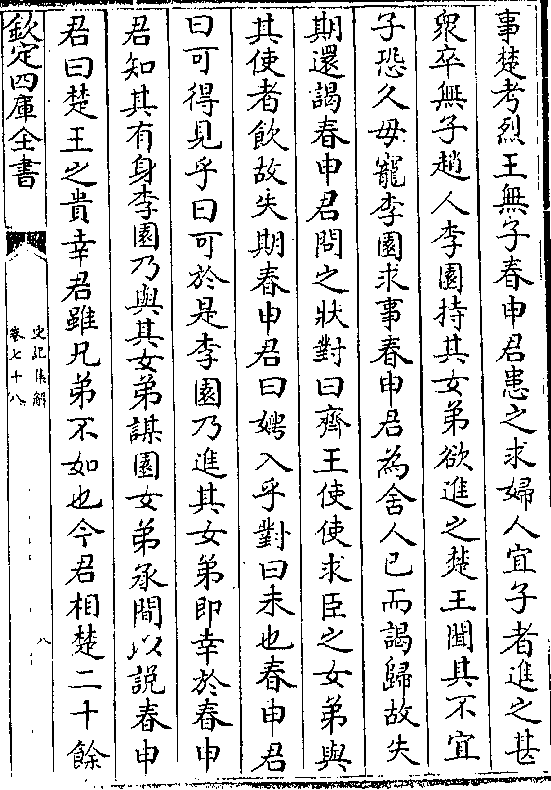 事楚考烈王無子春申君患之求婦人宜子者進之甚
衆卒無子趙人李園持其女弟欲進之楚王聞其不宜
子恐久毋寵李園求事春申君為舍人已而謁歸故失
期還謁春申君問之狀對曰齊王使使求臣之女弟與
其使者飲故失期春申君曰娉入乎對曰未也春申君
曰可得見乎曰可於是李園乃進其女弟即幸於春申
君知其有身李園乃與其女弟謀園女弟承間以説春申
君曰楚王之貴幸君雖兄弟不如也今君相楚二十餘
欽定四庫全書
史記集解
卷七十八
八